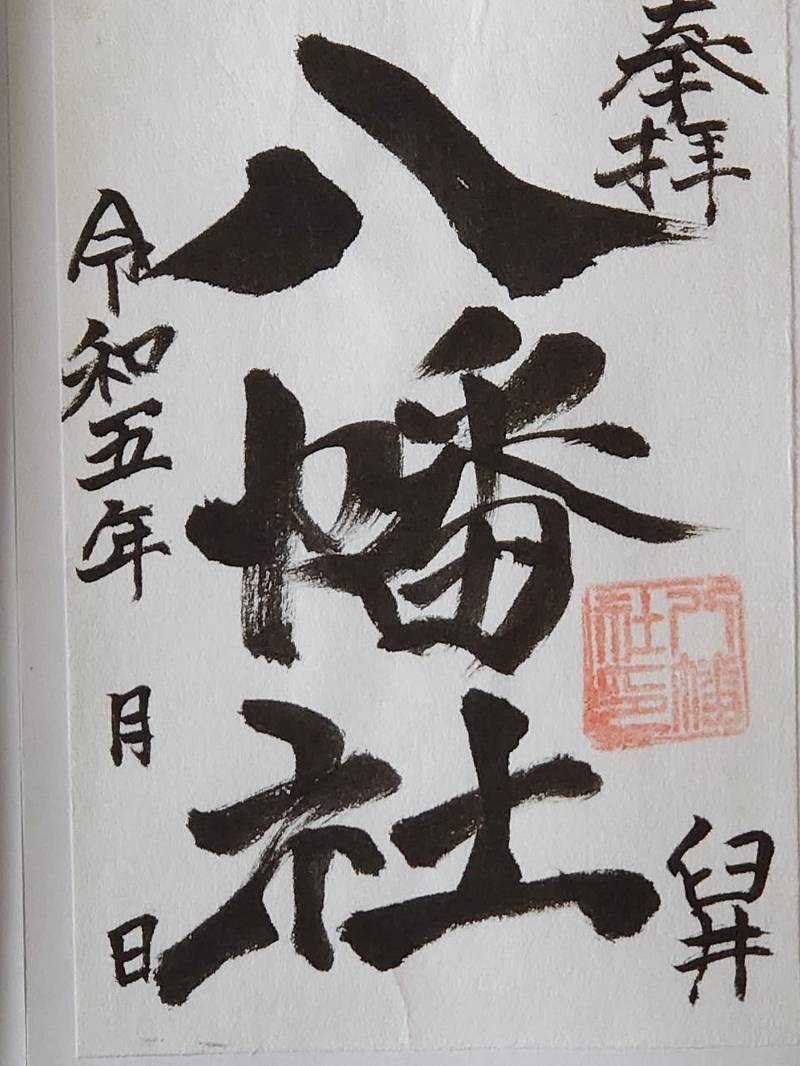 奉拝
臼井
八幡社
八幡社印
令和五年 月 日